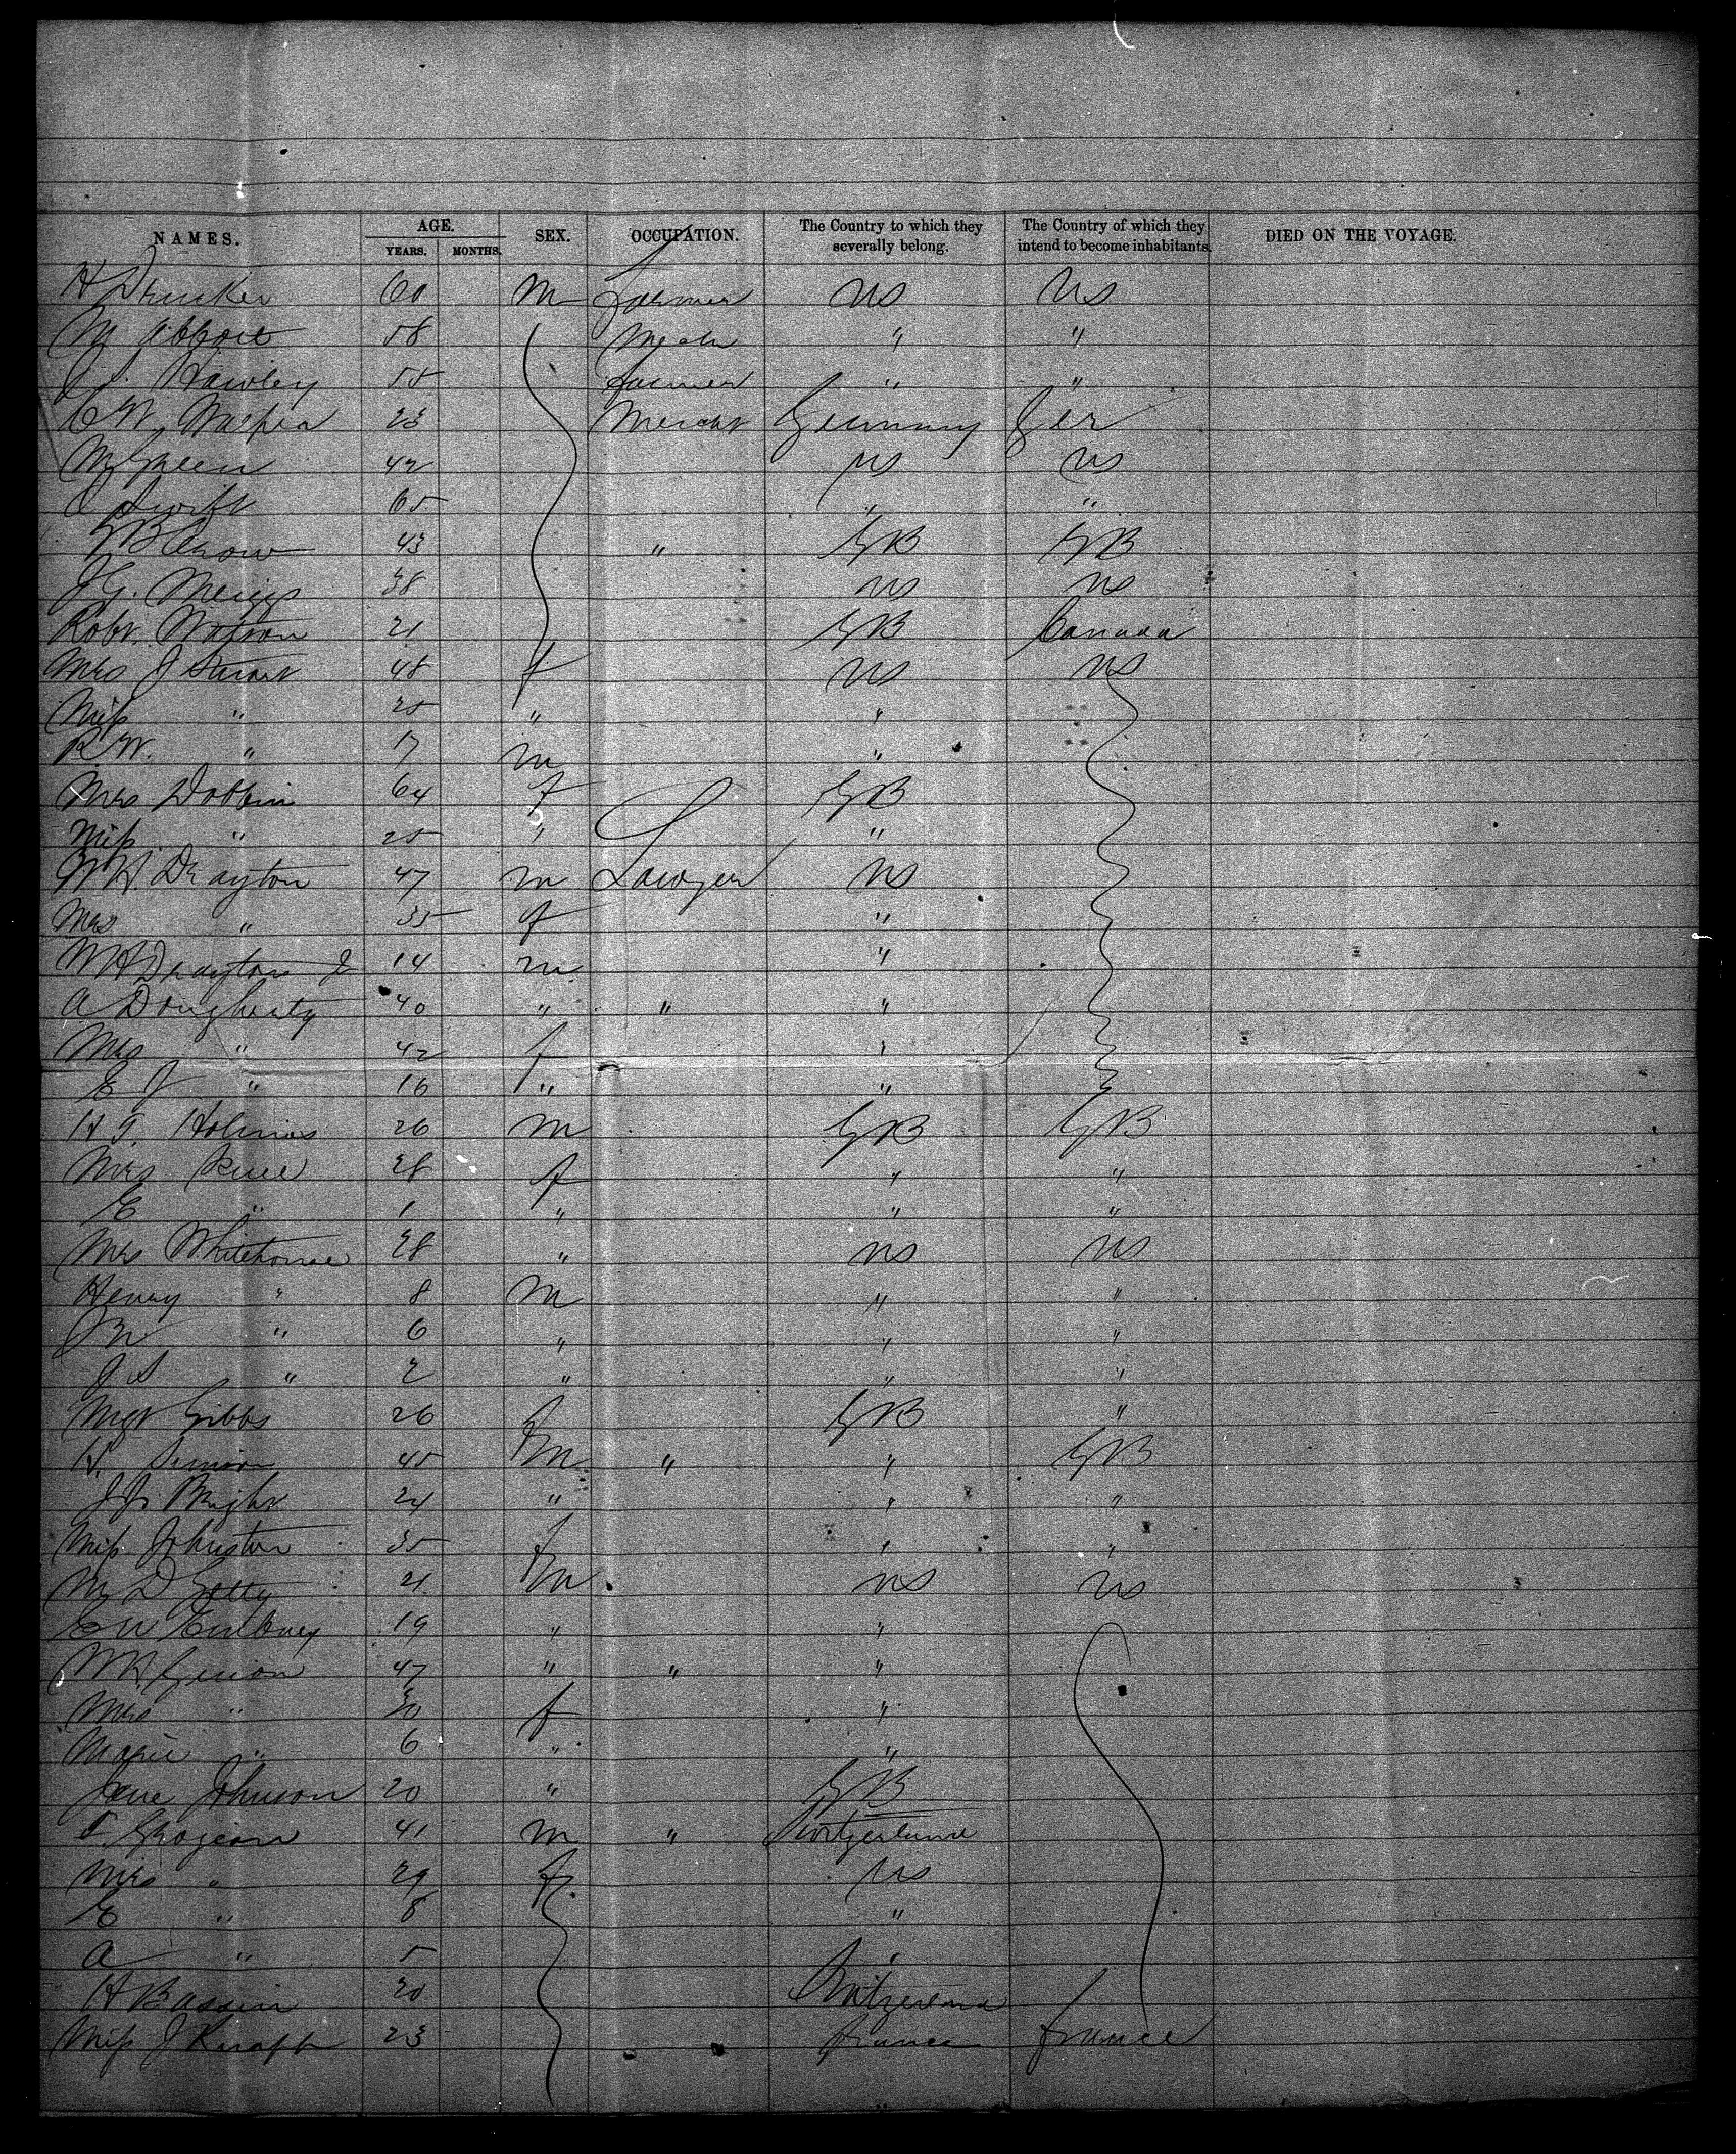 NAMES. AGE. YEARS. MONTHS. SEX. OCCUPATION. The Country to which they severally belong. The Country of which they intend to become inhabitants. DIED ON THE VOYAGE.
H Drucker 60 m Farmer US US
M Abbott 58 " "
Hawley 55 Farmer " "
C W 23 Mercht Germany Ger
M Green 42 US US
C Swift 65 " "
Crow 43 " GB GB
J G. Meiggs 38 US US
Robt. Watson 21 GB Canada
Mrs J Stewart 48 f US US
Miss " 25 " "
R W. " 17 m "
Mrs Dobbin 64 f GB
Miss " 25 " "
W H. Drayton 47 m Lawyer US
Mrs " 35 f "
W H Drayton Jr 14 m "
A Dougherty 40 " " "
Mrs " 42 f "
E J " 16 " "
H T. Holmes 26 m GB GB
Mrs 28 f " "
E " 1 " " "
Mrs Whitehouse 28 " US US
Henry " 8 m " "
" 6 " " "
J S " 2 " " "
Mgt Gibbs 26 f GB "
H. Simson 45 m " " GB
Bright 24 " " "
Miss Johnston 35 f " "
M D Getty 21 m US US
19 " "
W H Guion 47 " " "
Mrs " 30 f "
Marie " 6 " "
Jane Johnson 20 " GB
Grosjean 41 m " Switzerland
Mrs " 29 f US
E " 8 "
A " 5 "
H Bassin 20 Switzerland
Miss J Knapp 23 France France